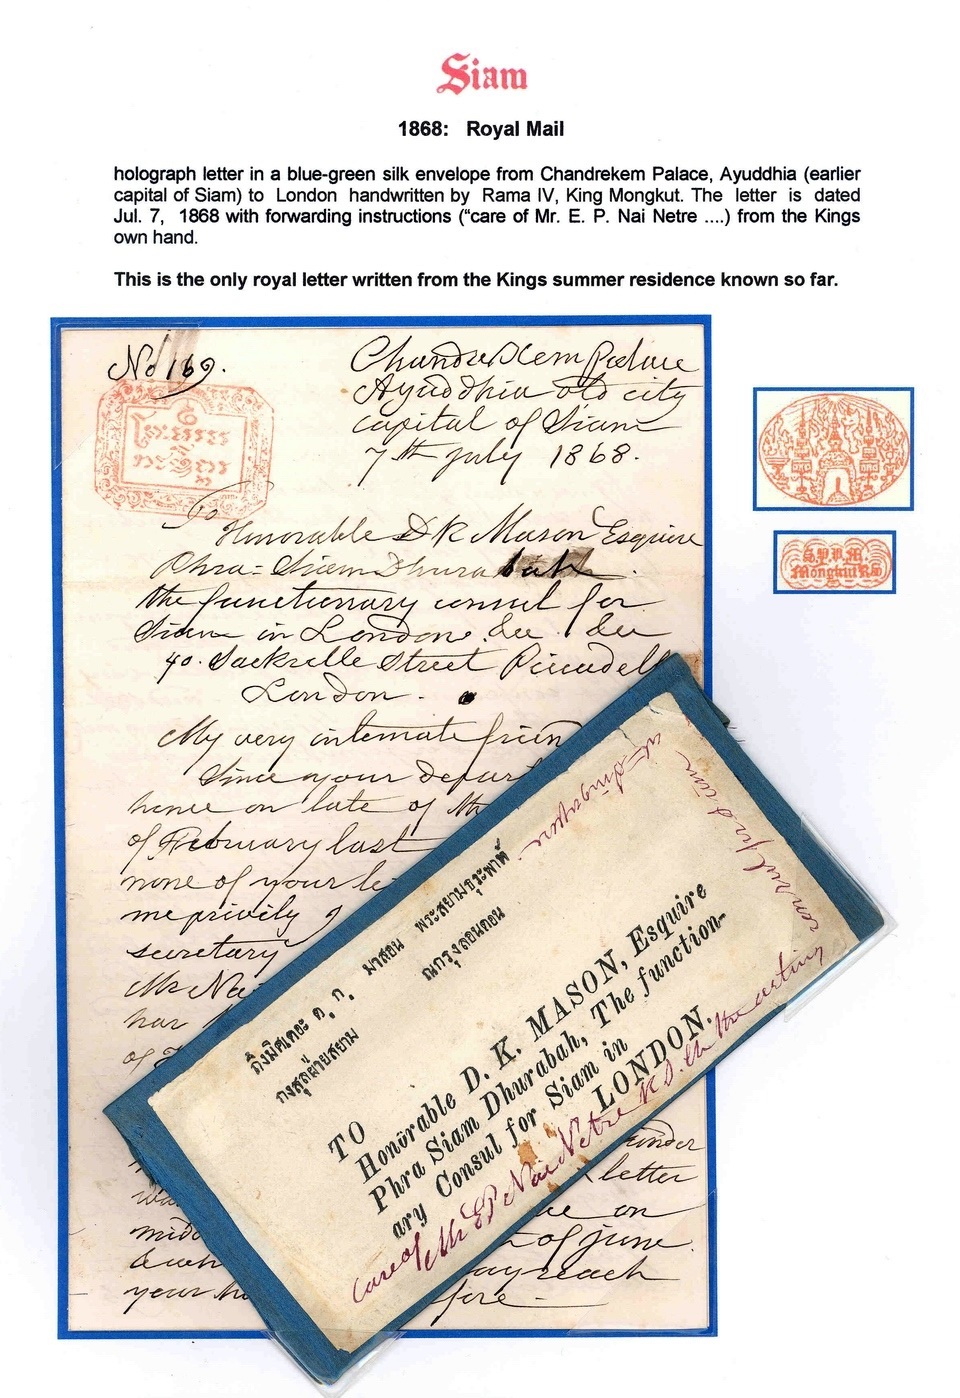 Siam
1868: Royal Mail
holograph letter in a blue-green silk envelope from Chandrekem Palace, Ayuddhia (earlier
capital of Siam) to London handwritten by Rama IV, King Mongkut. The letter is dated
Jul. 7, 1868 with forwarding instructions ("care of Mr. E. P. Nai Netre ....) from the Kings
own hand.
This is the only royal letter written from the Kings summer residence known so far.
No 169.
Chandrekem Palace
Ayuddhia old city
capital of Siam
7th July 1868.
To
Honorable D K Mason Esquire
Phra= Siam Dhurabah
the functionary consul for
Siam in London &c &c
40. Sackville Street
London.
My very intemate frien
Since your depart
hence on late of th
of February last
none of your le
me privily
secretary
Mr Na
har
of
under
letter
on
mid of June
reach
your
S.P.P.M.
Mongkut RS
ถึงมิศเตอะ ด, ก, มาสอน พระสยามธุระพาห์
กงสุลฝ่ายสยาม ณกรุงลอนดอน
TO
Honorable D. K. MASON, Esquire
Phra Siam Dhurabah, The function-
ary Consul for Siam in
LONDON.
care of Mr EP Nai Netre R.S. th the acting
consul for Siam
at Singapore